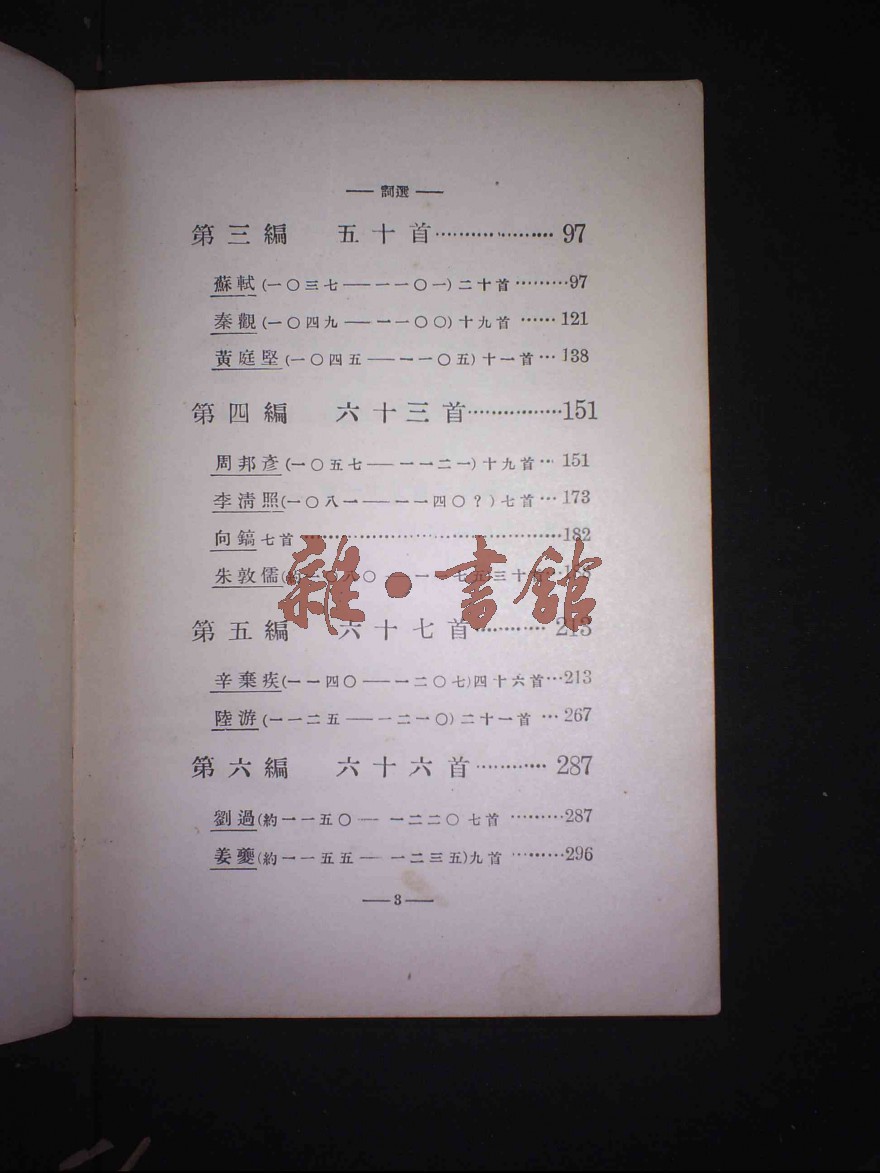 —— 詞選 ——
第三編 五十首…………………97
蘇軾(一〇三七——一一〇一)二十首………97
秦觀(一〇四九——一一〇〇)十九首……121
黃庭堅(一〇四五——一一〇五)十一首…138
第四編 六十三首………………151
周邦彥(一〇五七——一一二一)十九首…151
李清照(一〇八一——一一四〇?)七首…173
向鎬七首…………………………………182
朱敦儒(約一〇八〇——一一七五)三十首
雜·書館
第五編 六十七首…………213
辛棄疾(一一四〇——一二〇七)四十六首…213
陸游(一一二五——一二一〇)二十一首…267
第六編 六十六首…………287
劉過(約一一五〇——一二二〇七首………287
姜夔(約一一五五——一二三五)九首………296
——3——